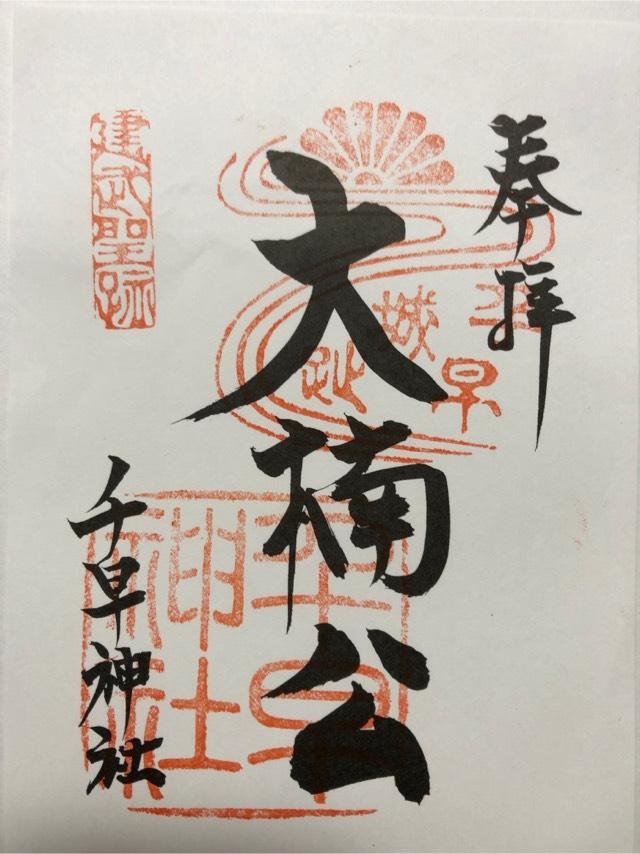 奉拝
千早城址
大楠公
建武聖跡
千早神社
千早神社